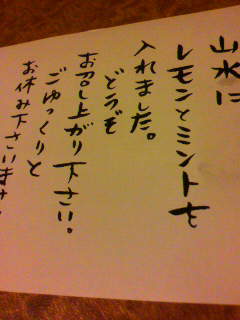 山水に
レモンとミントを
入れました。
どうぞ
お召し上がり下さい。
ごゆっくりと
お休み下さいませ